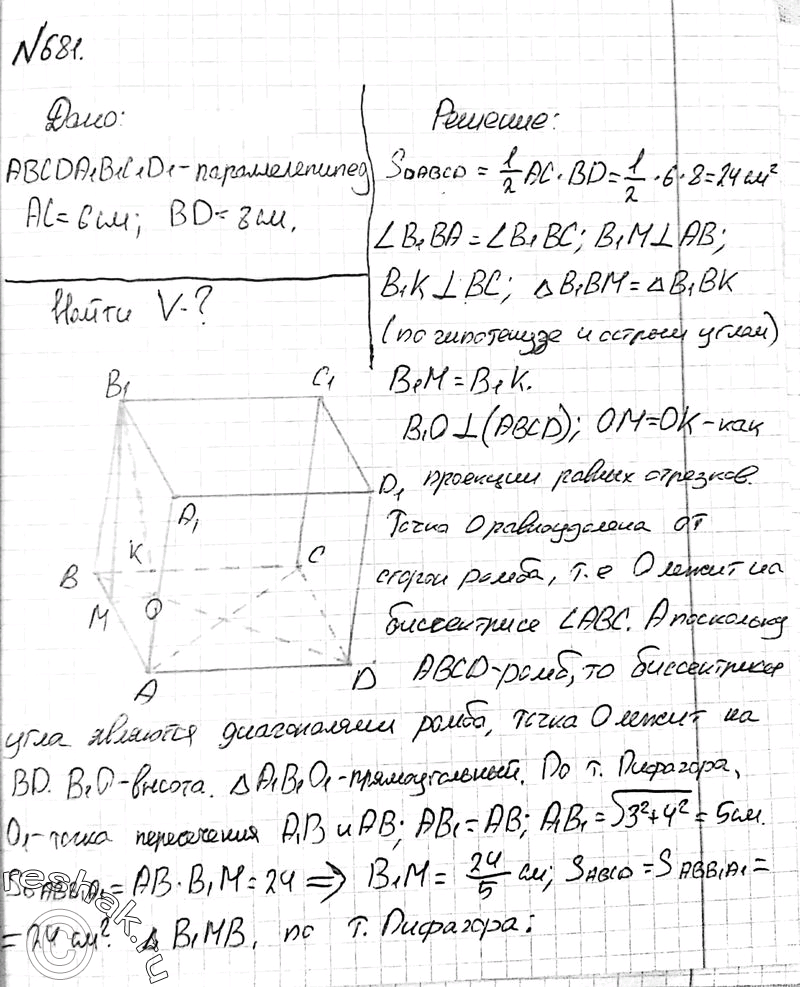 №681.
Дано:
ABCDA₁B₁C₁D₁-параллелепипед
AC=6см; BD=8см.
Найти V-?
Решение:
S◊ABCD = 1/2 AC·BD = 1/2 ·6·8=24см²
∠B₁BA=∠B₁BC; B₁M⊥AB;
B₁K⊥BC; △B₁BM=△B₁BK
(по гипотенузе и острым углам)
B₁M=B₁K.
B₁O⊥(ABCD); OM=OK-как
проекции равных отрезков.
Точка O равноудалена от
сторон ромба, т.е O лежит на
биссектрисе ∠ABC. А поскольку
ABCD-ромб, то биссектрисы
угла являются диагоналями ромба, точка O лежит на
BD. B₁O-высота. △A₁B₁O₁-прямоугольный. По т. Пифагора,
O₁-точка пересечения A₁B и AB; AB₁=AB; A₁B₁=√3²+4² = 5см.
S◊ABB₁A₁= AB·B₁M=24 ⇒ B₁M= 24/5 см; SABCD =SABB₁A₁=
= 24 см². △ B₁MB, по т. Пифагора:
B₁
C₁
A₁
D₁
K
B
C
M
O
A
D
© reshak.ru